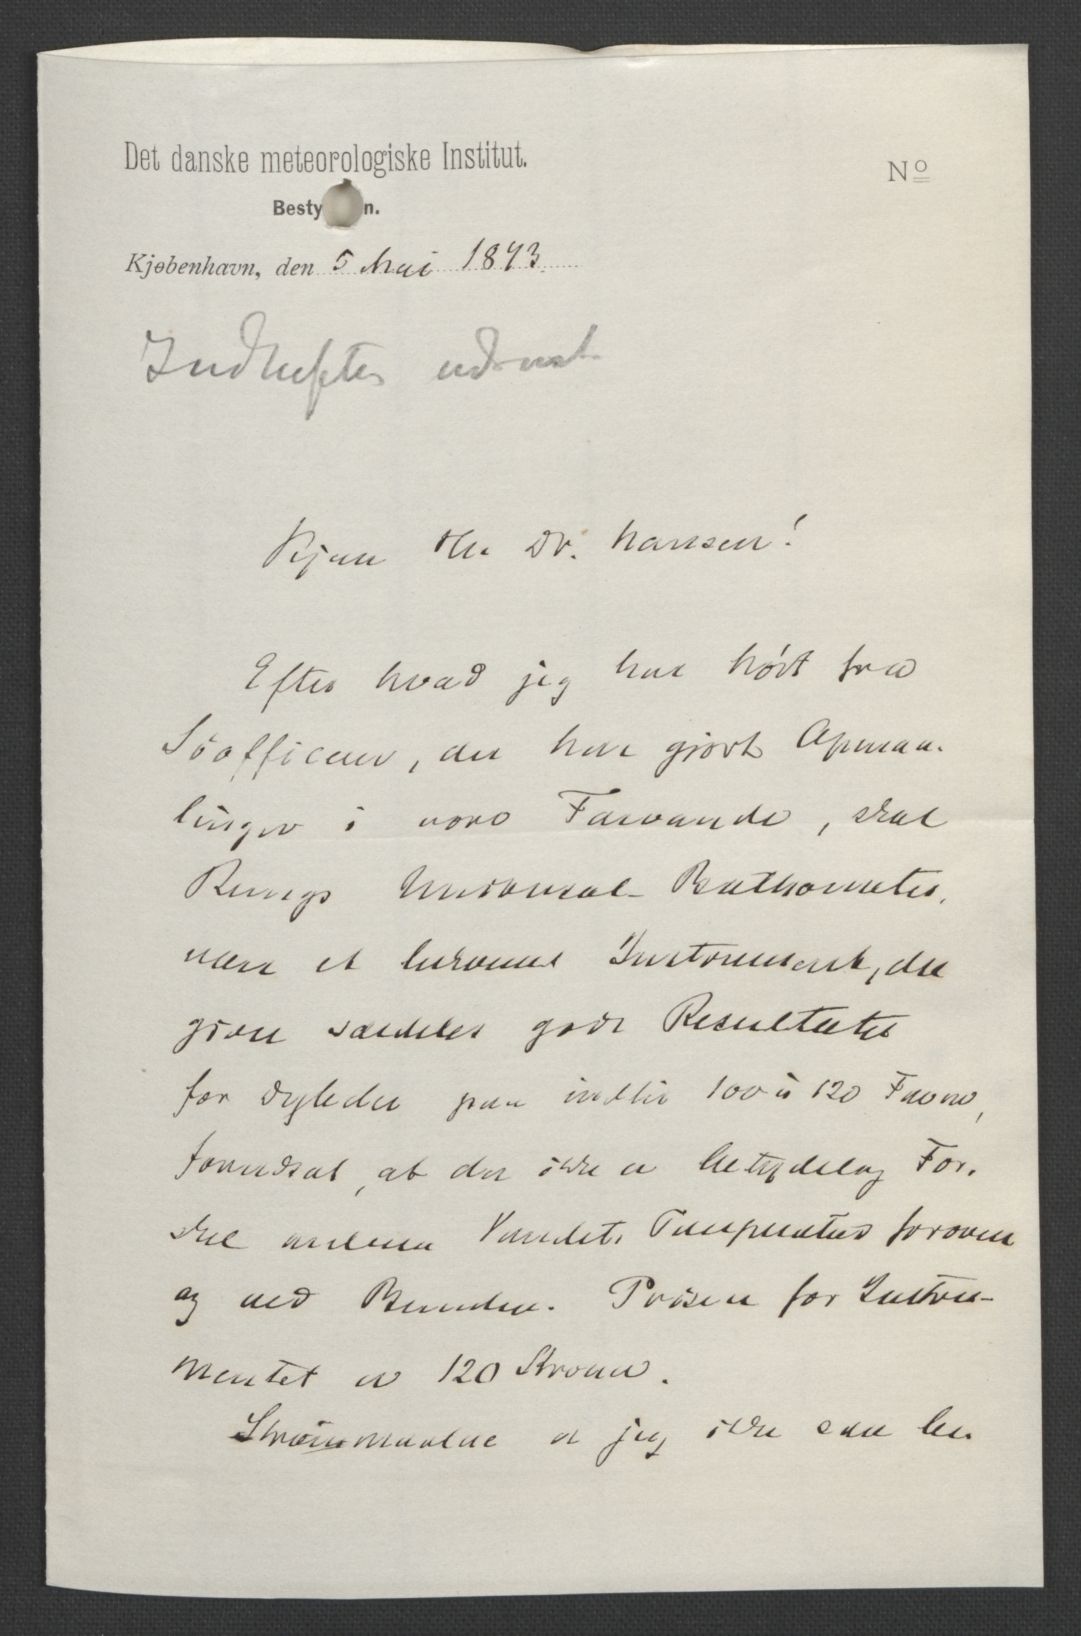 Det danske meteorologiske Institut.
Nº
Besty n.
Kjøbenhavn, den 5 Mai 1893.
Indheftes
Kjære Hr. Dr. Nansen!
Efter hvad jeg har hört fra
Söofficerer, der have gjort Opmaa-
linger i vore Farvande, skal
Rungs Universal-Bathometer
være et bekvemt Instrument, der
giver særdeles gode Resultater
for Dybder paa indtil 100 à 120 Favne,
forudsat, at der ikke er betydelig For-
skel mellem Vandets Temperatur foroven
og ved Bunden. Prisen for Instru-
mentet er 120 Kroner.
Strömmaalere er jeg ikke saa be-